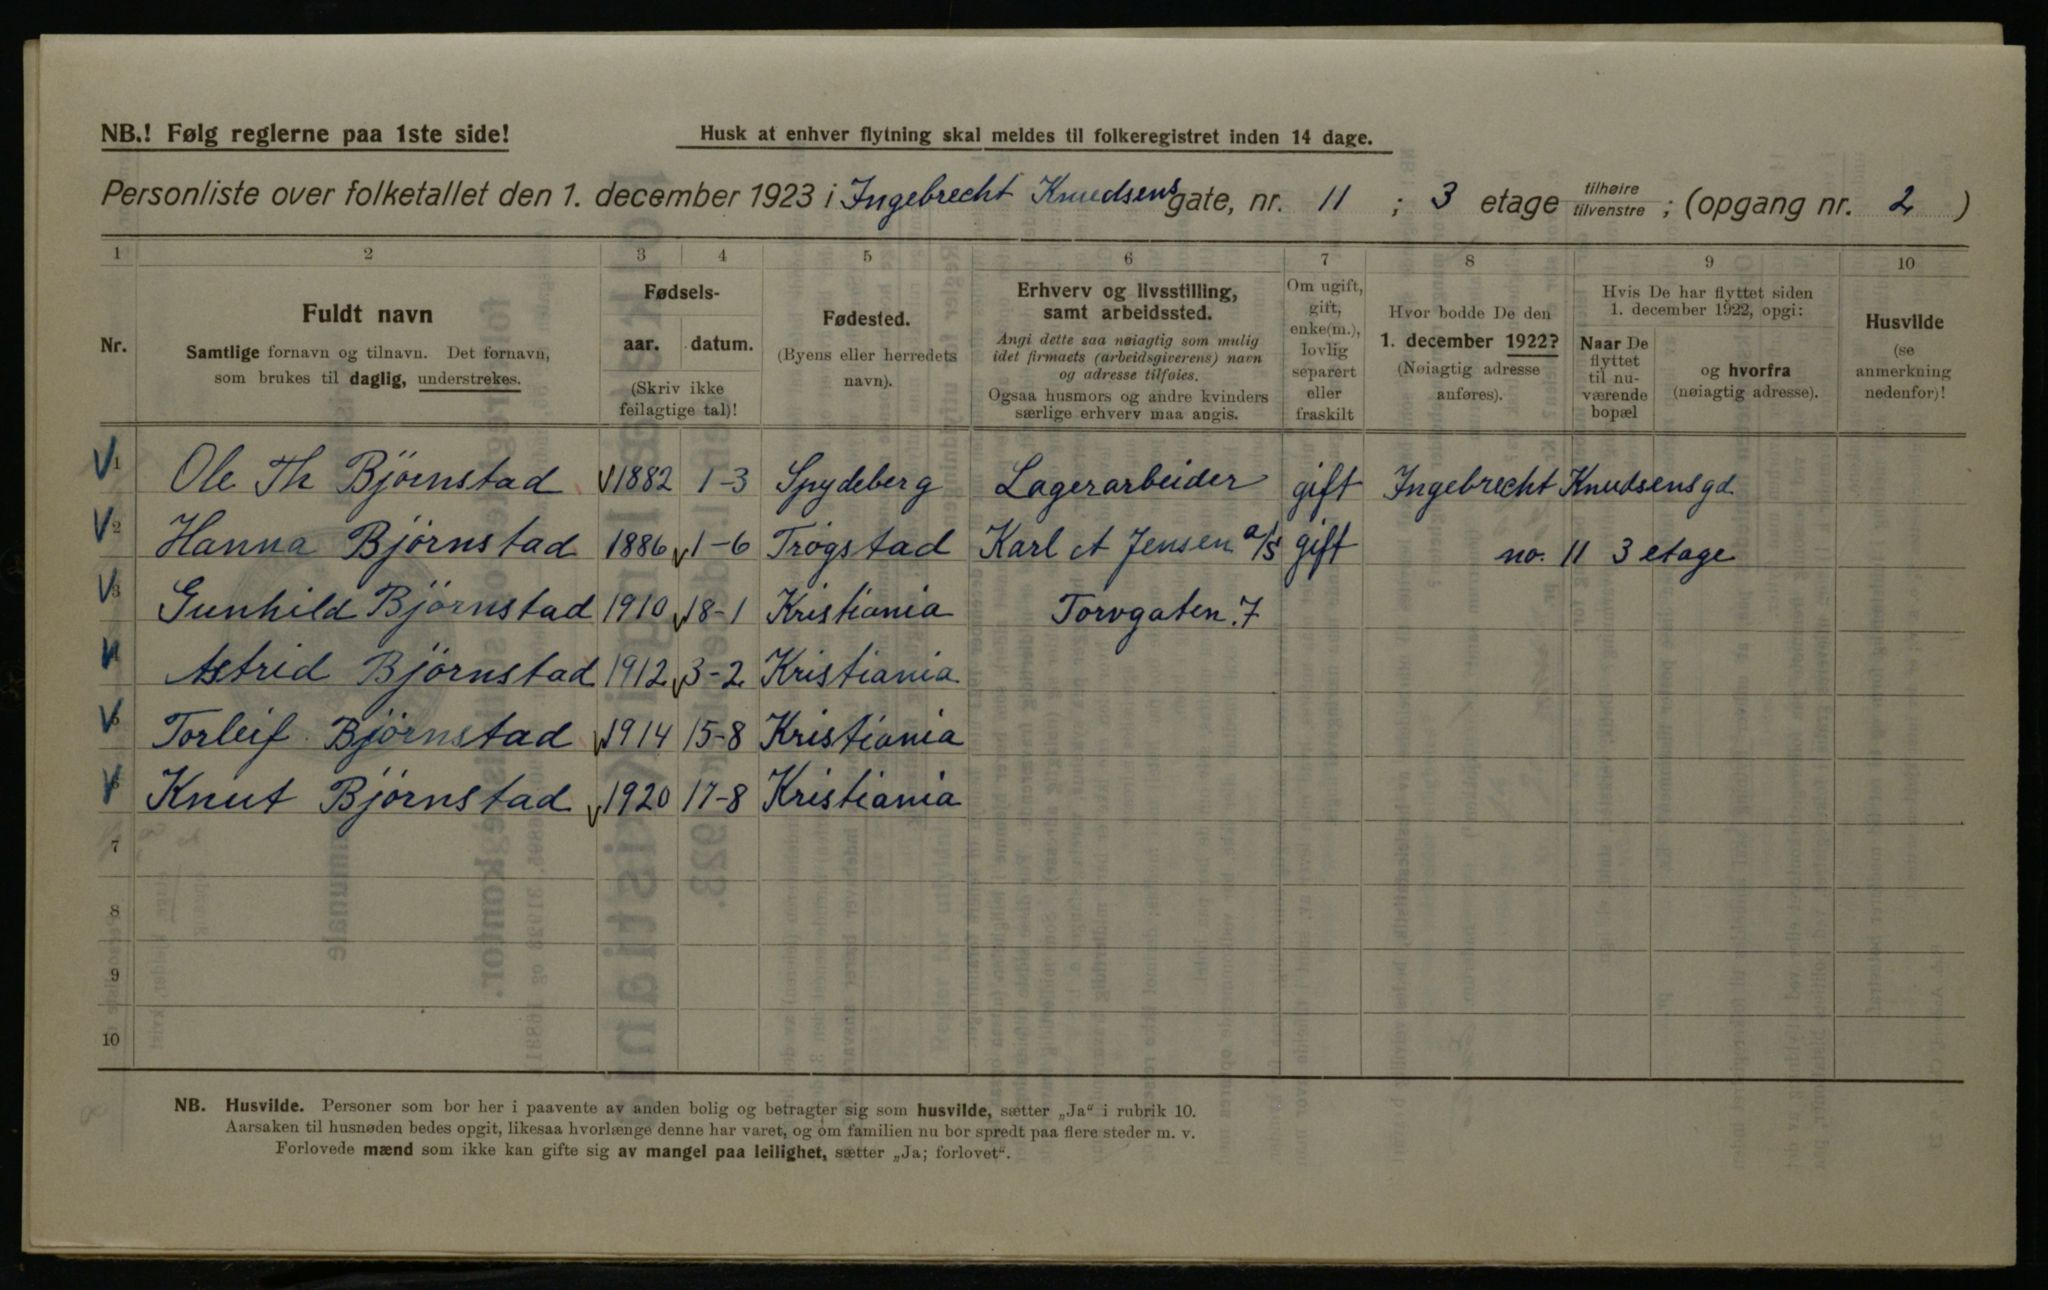 NB.! Følg reglerne paa 1ste side!
Husk at enhver flytning skal meldes til folkeregistret inden 14 dage.
Personliste over folketallet den 1. december 1923 i Ingebrecht Knudsens gate, nr. 11 ; 3 etage tilhøire tilvenstre ; (opgang nr. 2 )
1 2 3 4 5 6 7 8 9 10
Nr.
Fuldt navn
Samtlige fornavn og tilnavn. Det fornavn,
som brukes til daglig, understrekes.
Fødsels-
aar. datum.
(Skriv ikke
feilagtige tal)!
Fødested.
(Byens eller herredets
navn).
Erhverv og livsstilling,
samt arbeidssted.
Angi dette saa nøiagtig som mulig
idet firmaets (arbeidsgiverens) navn
og adresse tilføies.
Ogsaa husmors og andre kvinders
særlige erhverv maa angis.
Om ugift,
gift,
enke(m.),
lovlig
separert
eller
fraskilt
Hvor bodde De den
1. december 1922?
(Nøiagtig adresse
anføres).
Hvis De har flyttet siden
1. december 1922, opgi:
Naar De
flyttet
til nu-
værende
bopæl
og hvorfra
(nøiagtig adresse).
Husvilde
(se
anmerkning
nedenfor)!
1 Ole Th Bjørnstad 1882 1-3 Spydeberg Lagerarbeider gift Ingebrecht Knudsensgd
2 Hanna Bjørnstad 1886 1-6 Trøgstad Karl A Jensen a/s gift no. 11 3 etage
3 Gunhild Bjørnstad 1910 18-1 Kristiania Torvgaten. 7
4 Astrid Bjørnstad 1912 3-2 Kristiania
5 Torleif Bjørnstad 1914 15-8 Kristiania
6 Knut Bjørnstad 1920 17-8 Kristiania
7
8
9
10
NB. Husvilde. Personer som bor her i paavente av anden bolig og betragter sig som husvilde, sætter „Ja“ i rubrik 10.
Aarsaken til husnøden bedes opgit, likesaa hvorlænge denne har varet, og om familien nu bor spredt paa flere steder m. v.
Forlovede mænd som ikke kan gifte sig av mangel paa leilighet, sætter „Ja; forlovet“.